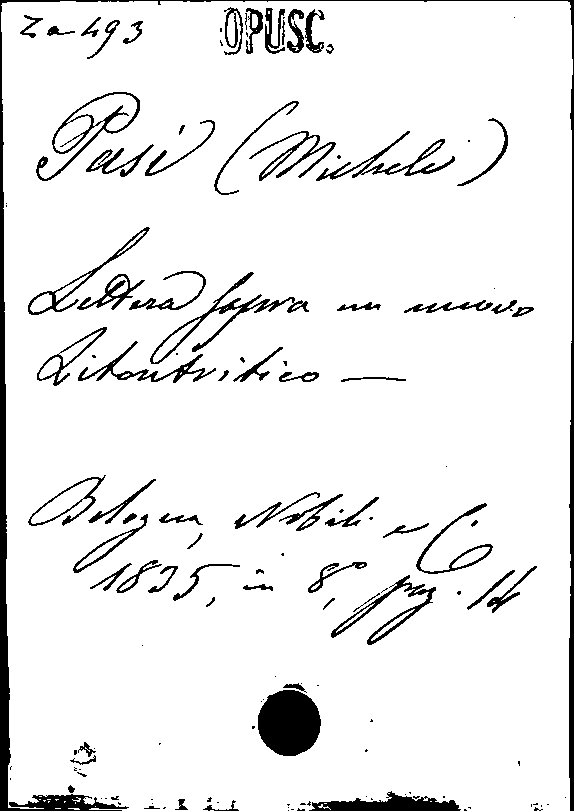 Za 493
OPUSC.
Pasi (Michele)
Lettera sopra un nuovo
Litontritico —
Bologna, Nobili e C.
1835, in 8°, pag. 14